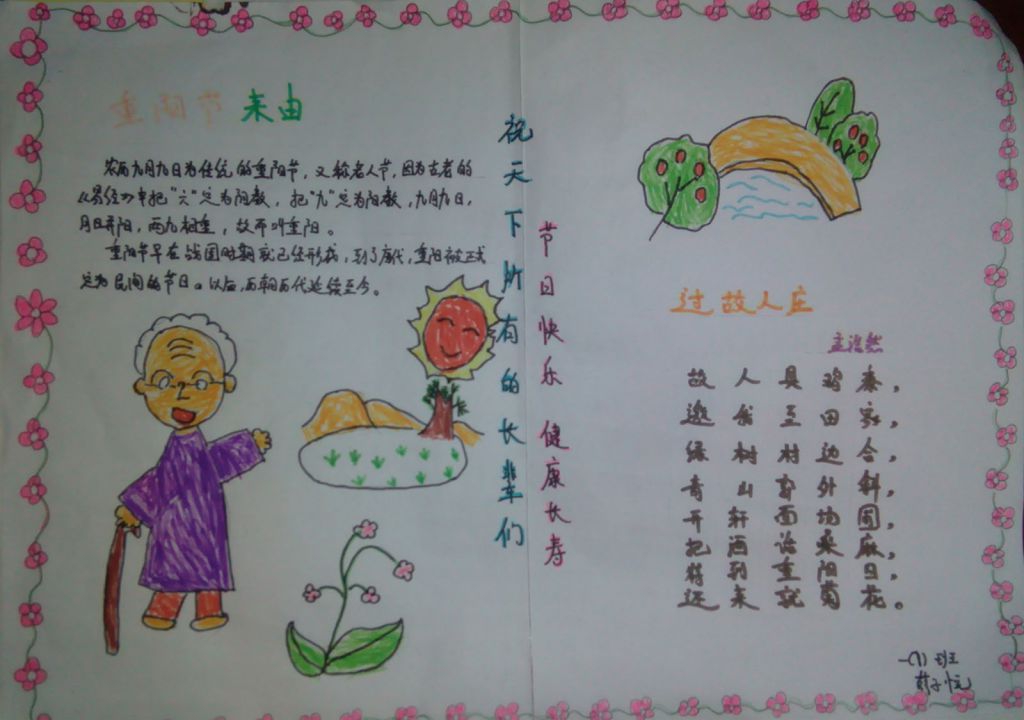 重阳节 来由
农历九月九日为传统的重阳节，又称老人节，因为古老的
《易经》中把“六”定为阴数，把“九”定为阳数，九月九日，
月日并阳，两九相重，故而叫重阳。
重阳节早在战国时期就已经形成，到了唐代，重阳被正式
定为民间的节日。以后，历朝历代延续至今。
祝天下所有的长辈们
节日快乐 健康长寿
过故人庄
孟浩然
故人具鸡黍，
邀我至田家，
绿树村边合，
青山郭外斜，
开轩面场圃，
把酒话桑麻，
待到重阳日，
还来就菊花。
一(1)班